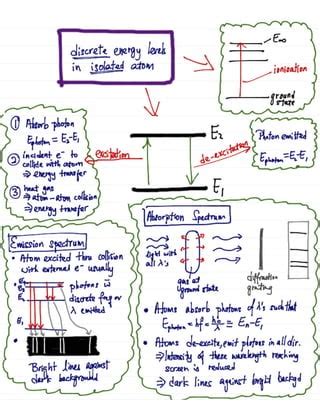 discrete energy levels
in isolated atom
E∞
ionization
ground
state
① Absorb photon
Ephoton = E2-E1
② incident e⁻ to
collide with atom
⇒ energy transfer
③ heat gas
⇒ atom-atom collision
⇒ energy transfer
excitation
E2
de-excitation
E1
Photon emitted
Ephoton = E2-E1
Emission spectrum
• Atom excited thru collision
with external e⁻ usually
• photons w
discrete freq or
λ emitted
E1
• Bright lines against
dark background
Absorption Spectrum
light with
all λ's
gas at
ground state
diffraction
grating
• Atoms absorb photons of λ's such that
Ephoton = hf = hc/λ = En-E1
• Atoms de-excite, emit photons in all dir.
⇒ Intensity of these wavelength reaching
screen is reduced
⇒ dark lines against bright backgd